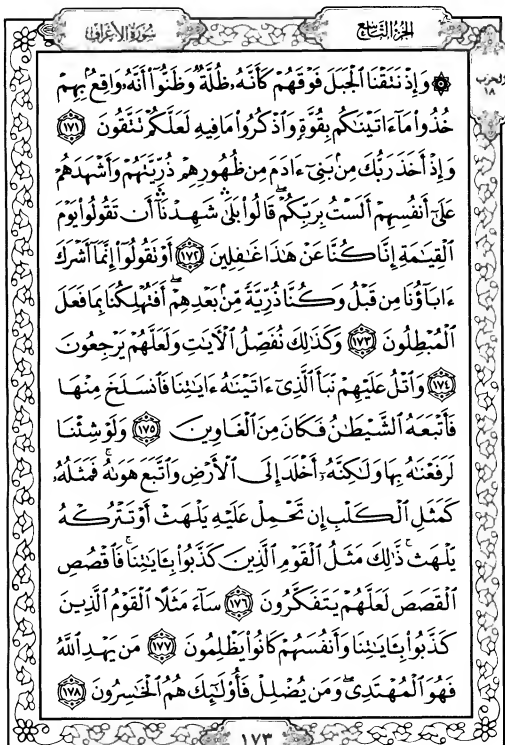 سُورَةُ الأَعْرَافِ
الجُزْءُ التَّاسِعُ
الحزب
١٨
۞ وَإِذْ نَتَقْنَا ٱلْجَبَلَ فَوْقَهُمْ كَأَنَّهُۥ ظُلَّةٌ وَظَنُّوٓا۟ أَنَّهُۥ وَاقِعٌۢ بِهِمْ
خُذُوا۟ مَآ ءَاتَيْنَٰكُم بِقُوَّةٍ وَٱذْكُرُوا۟ مَا فِيهِ لَعَلَّكُمْ تَتَّقُونَ ﴿١٧١﴾
وَإِذْ أَخَذَ رَبُّكَ مِنۢ بَنِىٓ ءَادَمَ مِن ظُهُورِهِمْ ذُرِّيَّتَهُمْ وَأَشْهَدَهُمْ
عَلَىٰٓ أَنفُسِهِمْ أَلَسْتُ بِرَبِّكُمْ ۖ قَالُوا۟ بَلَىٰ ۛ شَهِدْنَآ ۛ أَن تَقُولُوا۟ يَوْمَ
ٱلْقِيَٰمَةِ إِنَّا كُنَّا عَنْ هَٰذَا غَٰفِلِينَ ﴿١٧٢﴾ أَوْ تَقُولُوٓا۟ إِنَّمَآ أَشْرَكَ
ءَابَآؤُنَا مِن قَبْلُ وَكُنَّا ذُرِّيَّةً مِّنۢ بَعْدِهِمْ ۖ أَفَتُهْلِكُنَا بِمَا فَعَلَ
ٱلْمُبْطِلُونَ ﴿١٧٣﴾ وَكَذَٰلِكَ نُفَصِّلُ ٱلْءَايَٰتِ وَلَعَلَّهُمْ يَرْجِعُونَ
﴿١٧٤﴾ وَٱتْلُ عَلَيْهِمْ نَبَأَ ٱلَّذِىٓ ءَاتَيْنَٰهُ ءَايَٰتِنَا فَٱنسَلَخَ مِنْهَا
فَأَتْبَعَهُ ٱلشَّيْطَٰنُ فَكَانَ مِنَ ٱلْغَاوِينَ ﴿١٧٥﴾ وَلَوْ شِئْنَا
لَرَفَعْنَٰهُ بِهَا وَلَٰكِنَّهُۥٓ أَخْلَدَ إِلَى ٱلْأَرْضِ وَٱتَّبَعَ هَوَىٰهُ ۚ فَمَثَلُهُۥ
كَمَثَلِ ٱلْكَلْبِ إِن تَحْمِلْ عَلَيْهِ يَلْهَثْ أَوْ تَتْرُكْهُ
يَلْهَث ۚ ذَّٰلِكَ مَثَلُ ٱلْقَوْمِ ٱلَّذِينَ كَذَّبُوا۟ بِـَٔايَٰتِنَا ۚ فَٱقْصُصِ
ٱلْقَصَصَ لَعَلَّهُمْ يَتَفَكَّرُونَ ﴿١٧٦﴾ سَآءَ مَثَلًا ٱلْقَوْمُ ٱلَّذِينَ
كَذَّبُوا۟ بِـَٔايَٰتِنَا وَأَنفُسَهُمْ كَانُوا۟ يَظْلِمُونَ ﴿١٧٧﴾ مَن يَهْدِ ٱللَّهُ
فَهُوَ ٱلْمُهْتَدِى ۖ وَمَن يُضْلِلْ فَأُو۟لَٰٓئِكَ هُمُ ٱلْخَٰسِرُونَ ﴿١٧٨﴾
١٧٣